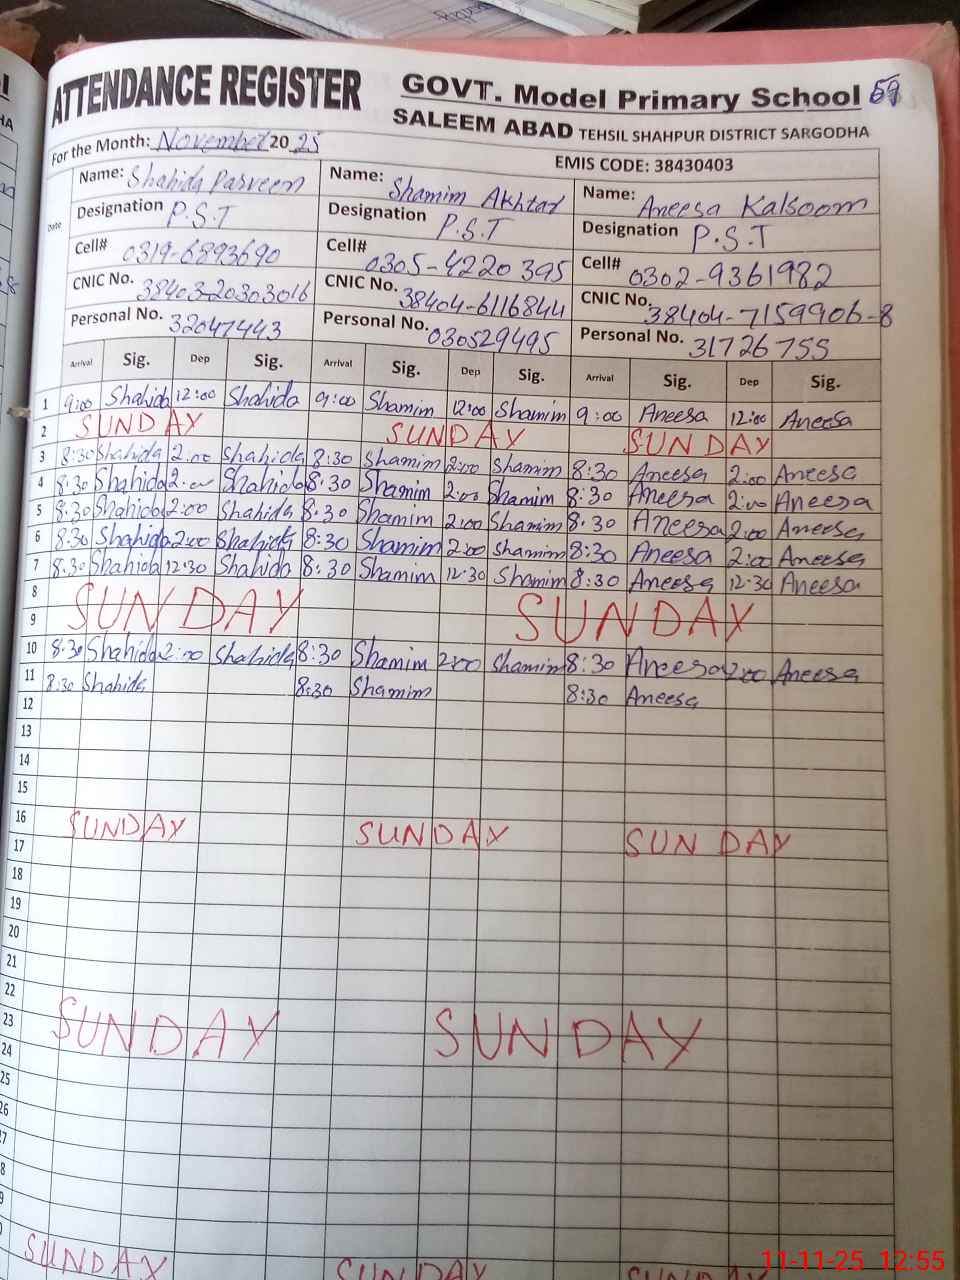 ATTENDANCE REGISTER
GOVT. Model Primary School 59
SALEEM ABAD TEHSIL SHAHPUR DISTRICT SARGODHA
For the Month: November 2025
EMIS CODE: 38430403
Date
Name: Shahida Parveen Name: Shamim Akhtar Name: Aneesa Kalsoom
Designation P.S.T Designation P.S.T Designation P.S.T
Cell# 0319-6893690 Cell# 0305-4220395 Cell# 0302-9361982
CNIC No. 38403-20303016 CNIC No. 38404-6116844 CNIC No. 38404-7159906-8
Personal No. 32047443 Personal No. 030529495 Personal No. 31726755
Arrival Sig. Dep Sig. Arrival Sig. Dep Sig. Arrival Sig. Dep Sig.
1 9:00 Shahida 12:00 Shahida 9:00 Shamim 12:00 Shamim 9:00 Aneesa 12:00 Aneesa
2 SUNDAY SUNDAY SUNDAY
3 8:30 Shahida 2:00 Shahida 8:30 Shamim 2:00 Shamim 8:30 Aneesa 2:00 Aneesa
4 8:30 Shahida 2:00 Shahida 8:30 Shamim 2:00 Shamim 8:30 Aneesa 2:00 Aneesa
5 8:30 Shahida 2:00 Shahida 8:30 Shamim 2:00 Shamim 8:30 Aneesa 2:00 Aneesa
6 8:30 Shahida 2:00 Shahida 8:30 Shamim 2:00 Shamim 8:30 Aneesa 2:00 Aneesa
7 8:30 Shahida 12:30 Shahida 8:30 Shamim 12:30 Shamim 8:30 Aneesa 12:30 Aneesa
8
9 SUNDAY SUNDAY
10 8:30 Shahida 2:00 Shahida 8:30 Shamim 2:00 Shamim 8:30 Aneesa 2:00 Aneesa
11 8:30 Shahida 8:30 Shamim 8:30 Aneesa
12
13
14
15
16 SUNDAY SUNDAY SUNDAY
17
18
19
20
21
22
23 SUNDAY SUNDAY
24
25
26
SUNDAY SUNDAY SUNDAY
11-11-25 12:55